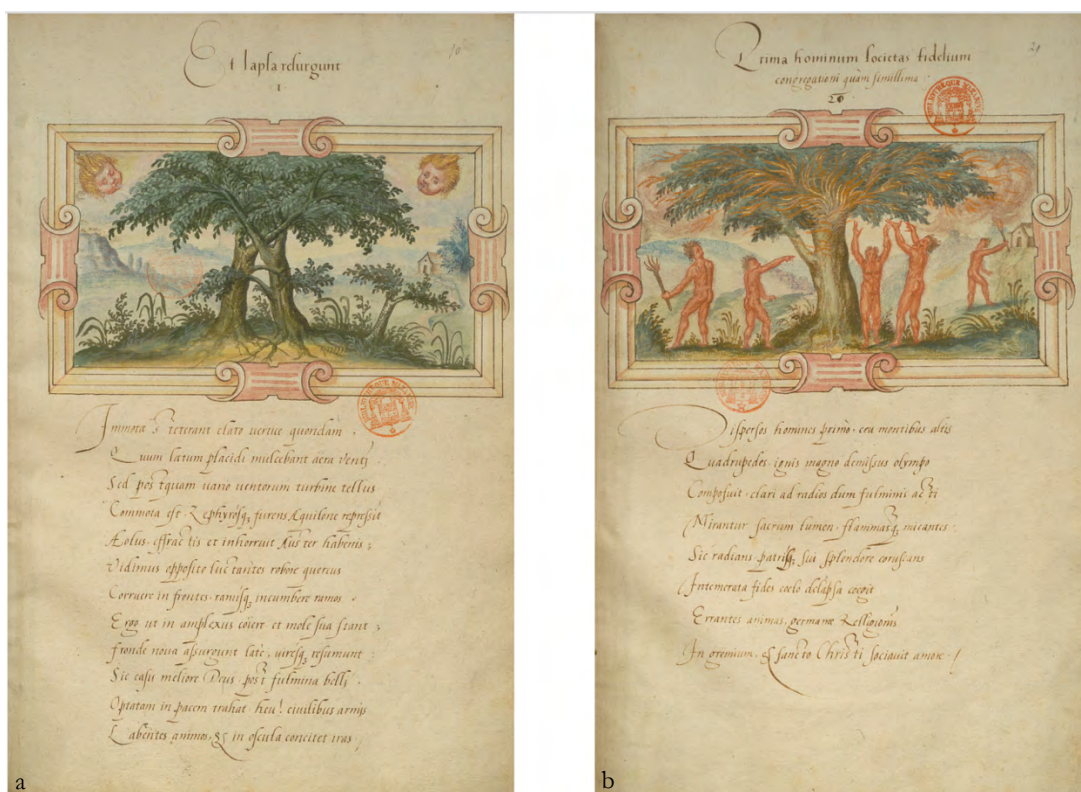 Et lapsa resurgunt
10
1
Immota steterant claro uertice quondam
Quum latum placidi mulcebant aera uenti
Sed postquam uario uentorum turbine tellus
Commota est. Zephyrosq; furens Aquilone repressit
Æolus, effractis et inhorruit Auster habenis;
Vidimus opposito luctantes robore quercus
Corruere in frontes, ramisq; incumbere ramos.
Ergo ut in amplexus coiere et mole sua stant;
fronde noua assurgunt late, uiresq; resumunt:
Sic casu meliore Deus post fulmina belli
Optatam in pacem trahat heu! ciuilibus armis
Labentes animos, & in oscula concitet iras
a
Prima hominum societas fidelium
21
congregationi quàm simillima
26
BIBLIOTHEQUE MAZARINE
Dispersos homines primo. ceu montibus altis
Quadrupedes, ignis magno demissus olympo
Composuit. clari ad radios dum fulminis acti
Mirantur sacrum lumen. flammasq; micantes.
Sic radians patrisq; sui splendore coruscans
Intemerata fides coelo delapsa coegit
Errantes animas, germanæ Relligionis
In gremium, & sancto Christi sociauit amore.
b